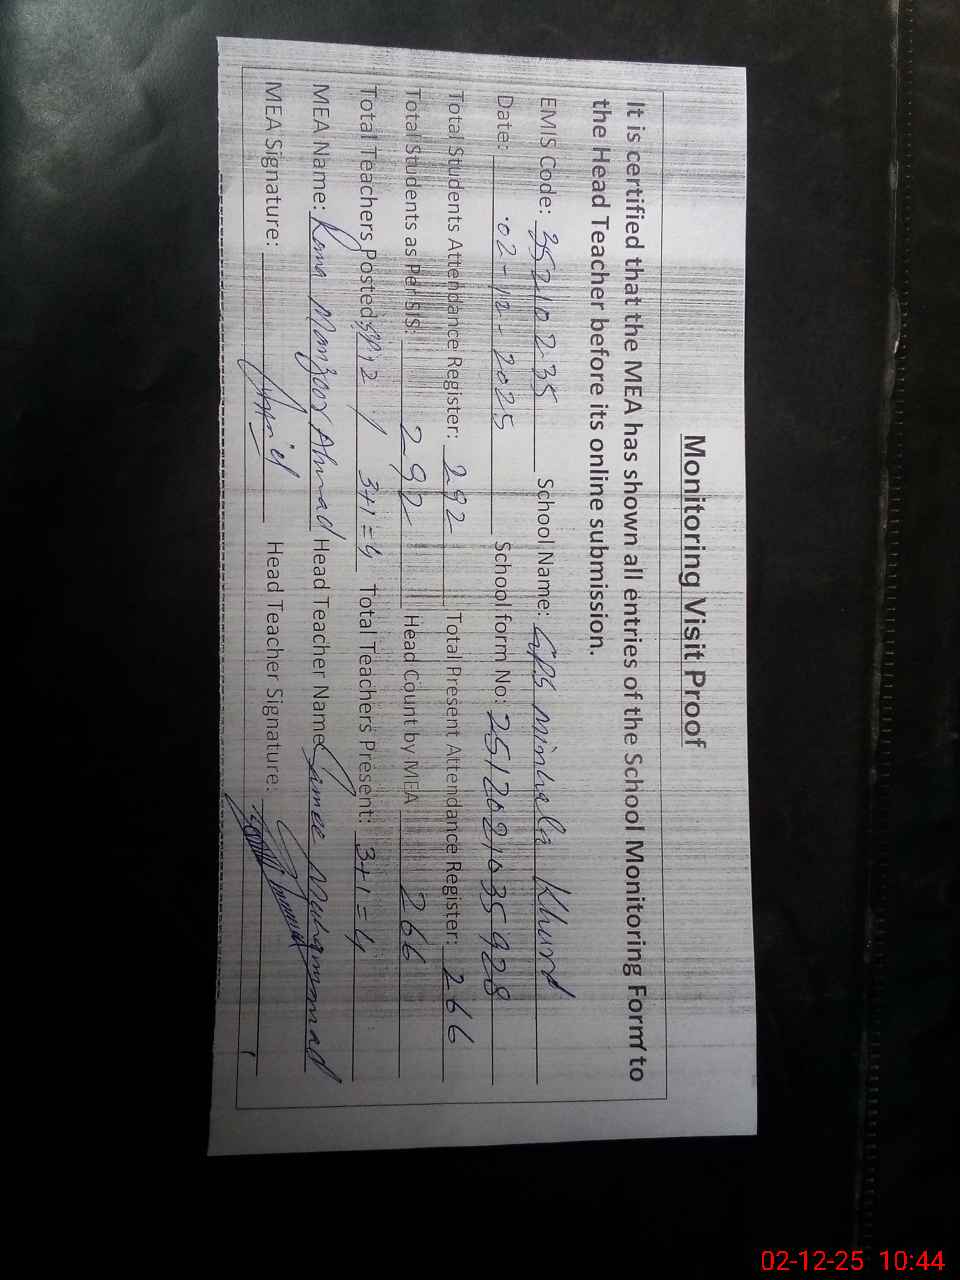 Monitoring Visit Proof
It is certified that the MEA has shown all entries of the School Monitoring Form to
the Head Teacher before its online submission.
EMIS Code: 35210235 School Name: GPS Minhala Khurd
Date: 02-12-2025 School form No: 2512021035928
Total Students Attendance Register: 292 Total Present Attendance Register: 266
Total Students as Per SIS: 292 Head Count by MEA 266
Total Teachers Posted: 3+1=4 Total Teachers Present: 3+1=4
MEA Name: Rana Manzoor Ahmad Head Teacher Name Samee Muhammad
MEA Signature: Head Teacher Signature:
02-12-25 10:44